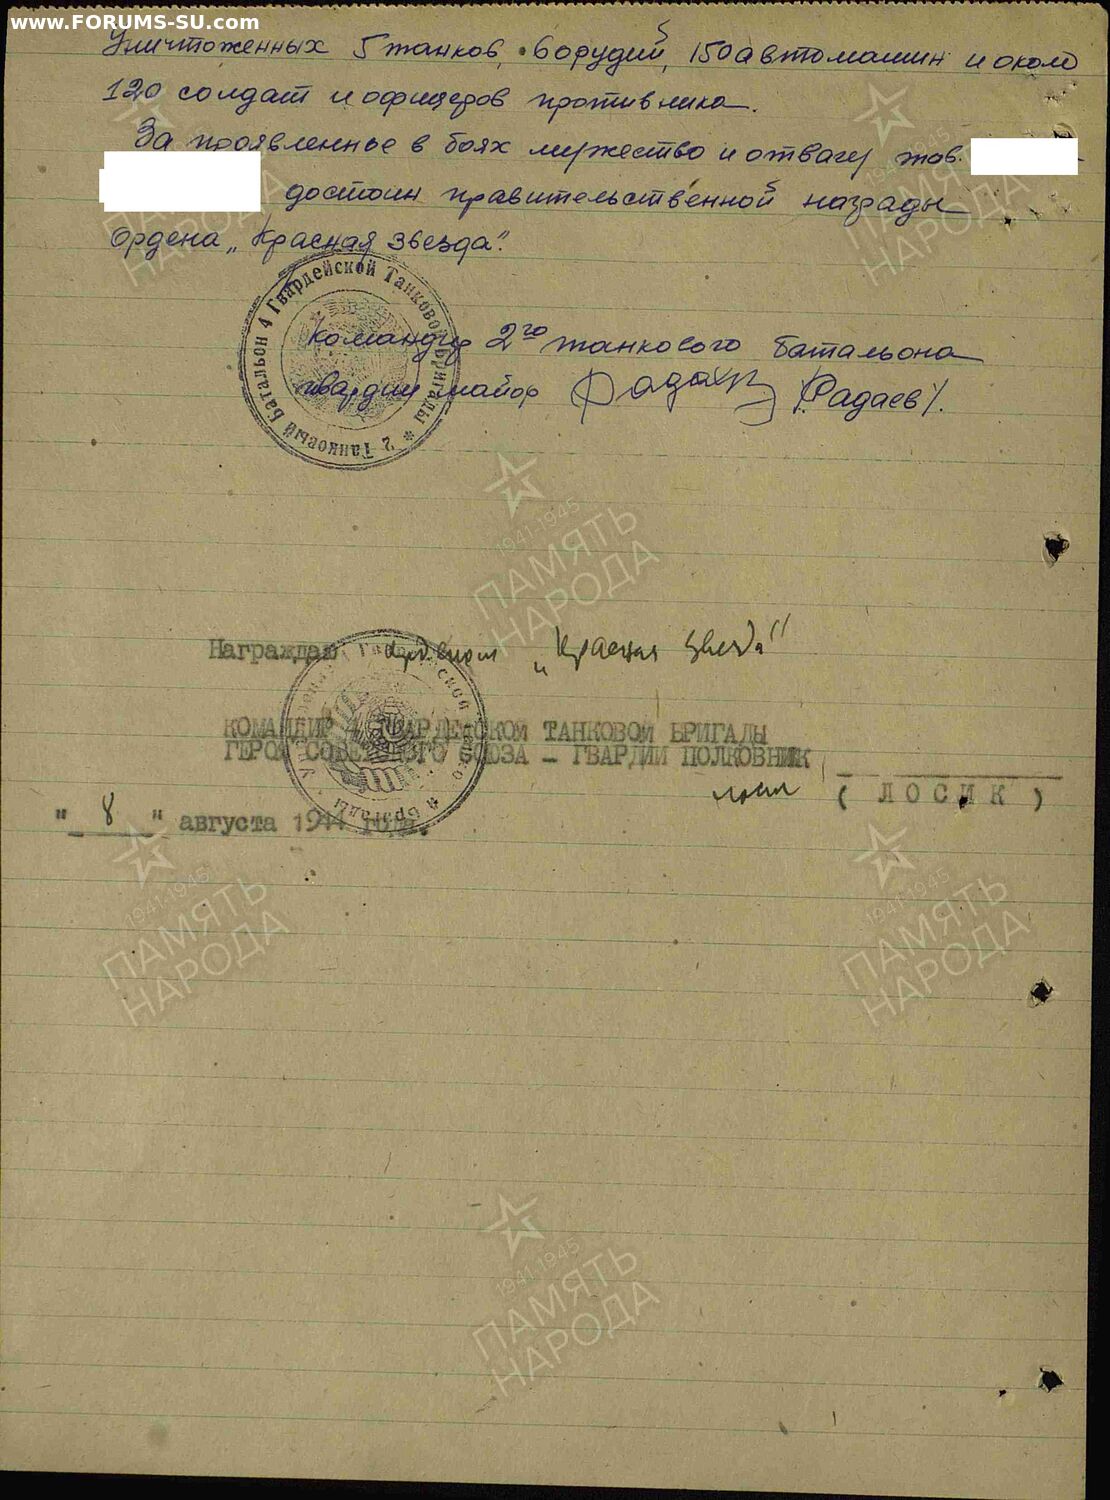 www.FORUMS-SU.com
Уничтоженных 5 танков, 6 орудий, 150 автомашин и около
120 солдат и офицеров противника.
За проявленное в боях мужество и отвагу тов.
достоин правительственной награды
Ордена „Красная звезда".
2 Танковый Батальон 4 Гвардейской Танковой Бригады *
Командир 2го танкового батальона
гвардии майор Фадаев /Фадаев/.
Награждаю Орденом „Красная звезда"
КОМАНДИР 4 ГВАРДЕЙСКОЙ ТАНКОВОЙ БРИГАДЫ
ГЕРОЙ СОВЕТСКОГО СОЮЗА – ГВАРДИИ ПОЛКОВНИК
( ЛОСИК )
" 8 " августа 1944 года.
1941-1945
ПАМЯТЬ
НАРОДА
1941-1945
ПАМЯТЬ
НАРОДА
1941-1945
ПАМЯТЬ
НАРОДА
1941-1945
ПАМЯТЬ
НАРОДА
1941-1945
ПАМЯТЬ
НАРОДА
1941-1945
ПАМЯТЬ
НАРОДА